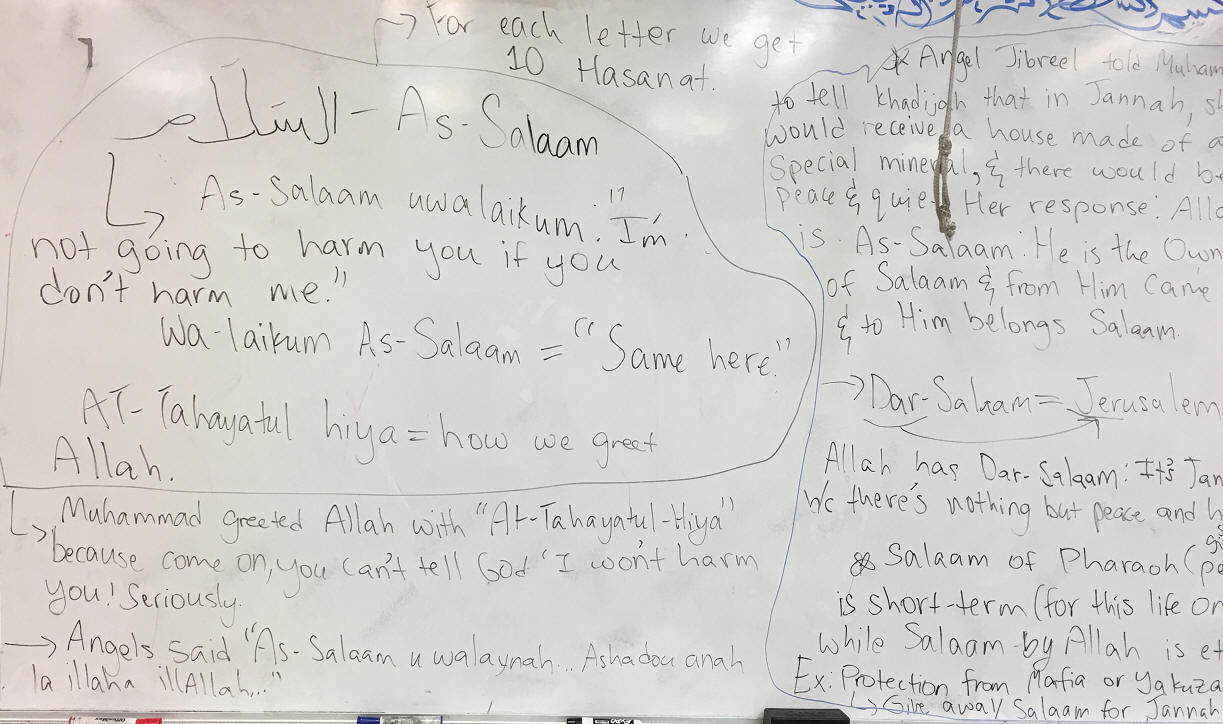 → For each letter we get
10 Hasanat.
السَّلَام - As-Salaam
As-Salaam uwalaikum: "I'm
not going to harm you if you
don't harm me."
Wa-laikum As-Salaam = "Same here."
AT-Tahayatul hiya = how we greet
Allah.
Muhammad greeted Allah with "At-Tahayatul-Hiya"
because come on, you can't tell God 'I won't harm
you! Seriously.
→ Angels said "As-Salaam u walaynah... Ashadou anah
la illaha illAllah..."
* Angel Jibreel told Muham
to tell Khadijah that in Jannah, s
would receive a house made of a
special mineral, & there would be
peace & quiet. Her response: Alla
is As-Salaam: He is the Own
of Salaam & from Him came
& to Him belongs Salaam.
→ Dar-Salaam = Jerusalem
Allah has Dar-Salaam: It's Jan
b/c there's nothing but peace and h
* Salaam of Pharaoh (pe
is short-term (for this life on
while Salaam by Allah is et
Ex: Protection from Mafia or Yakuza
↳ Give away Salaam for Jannah